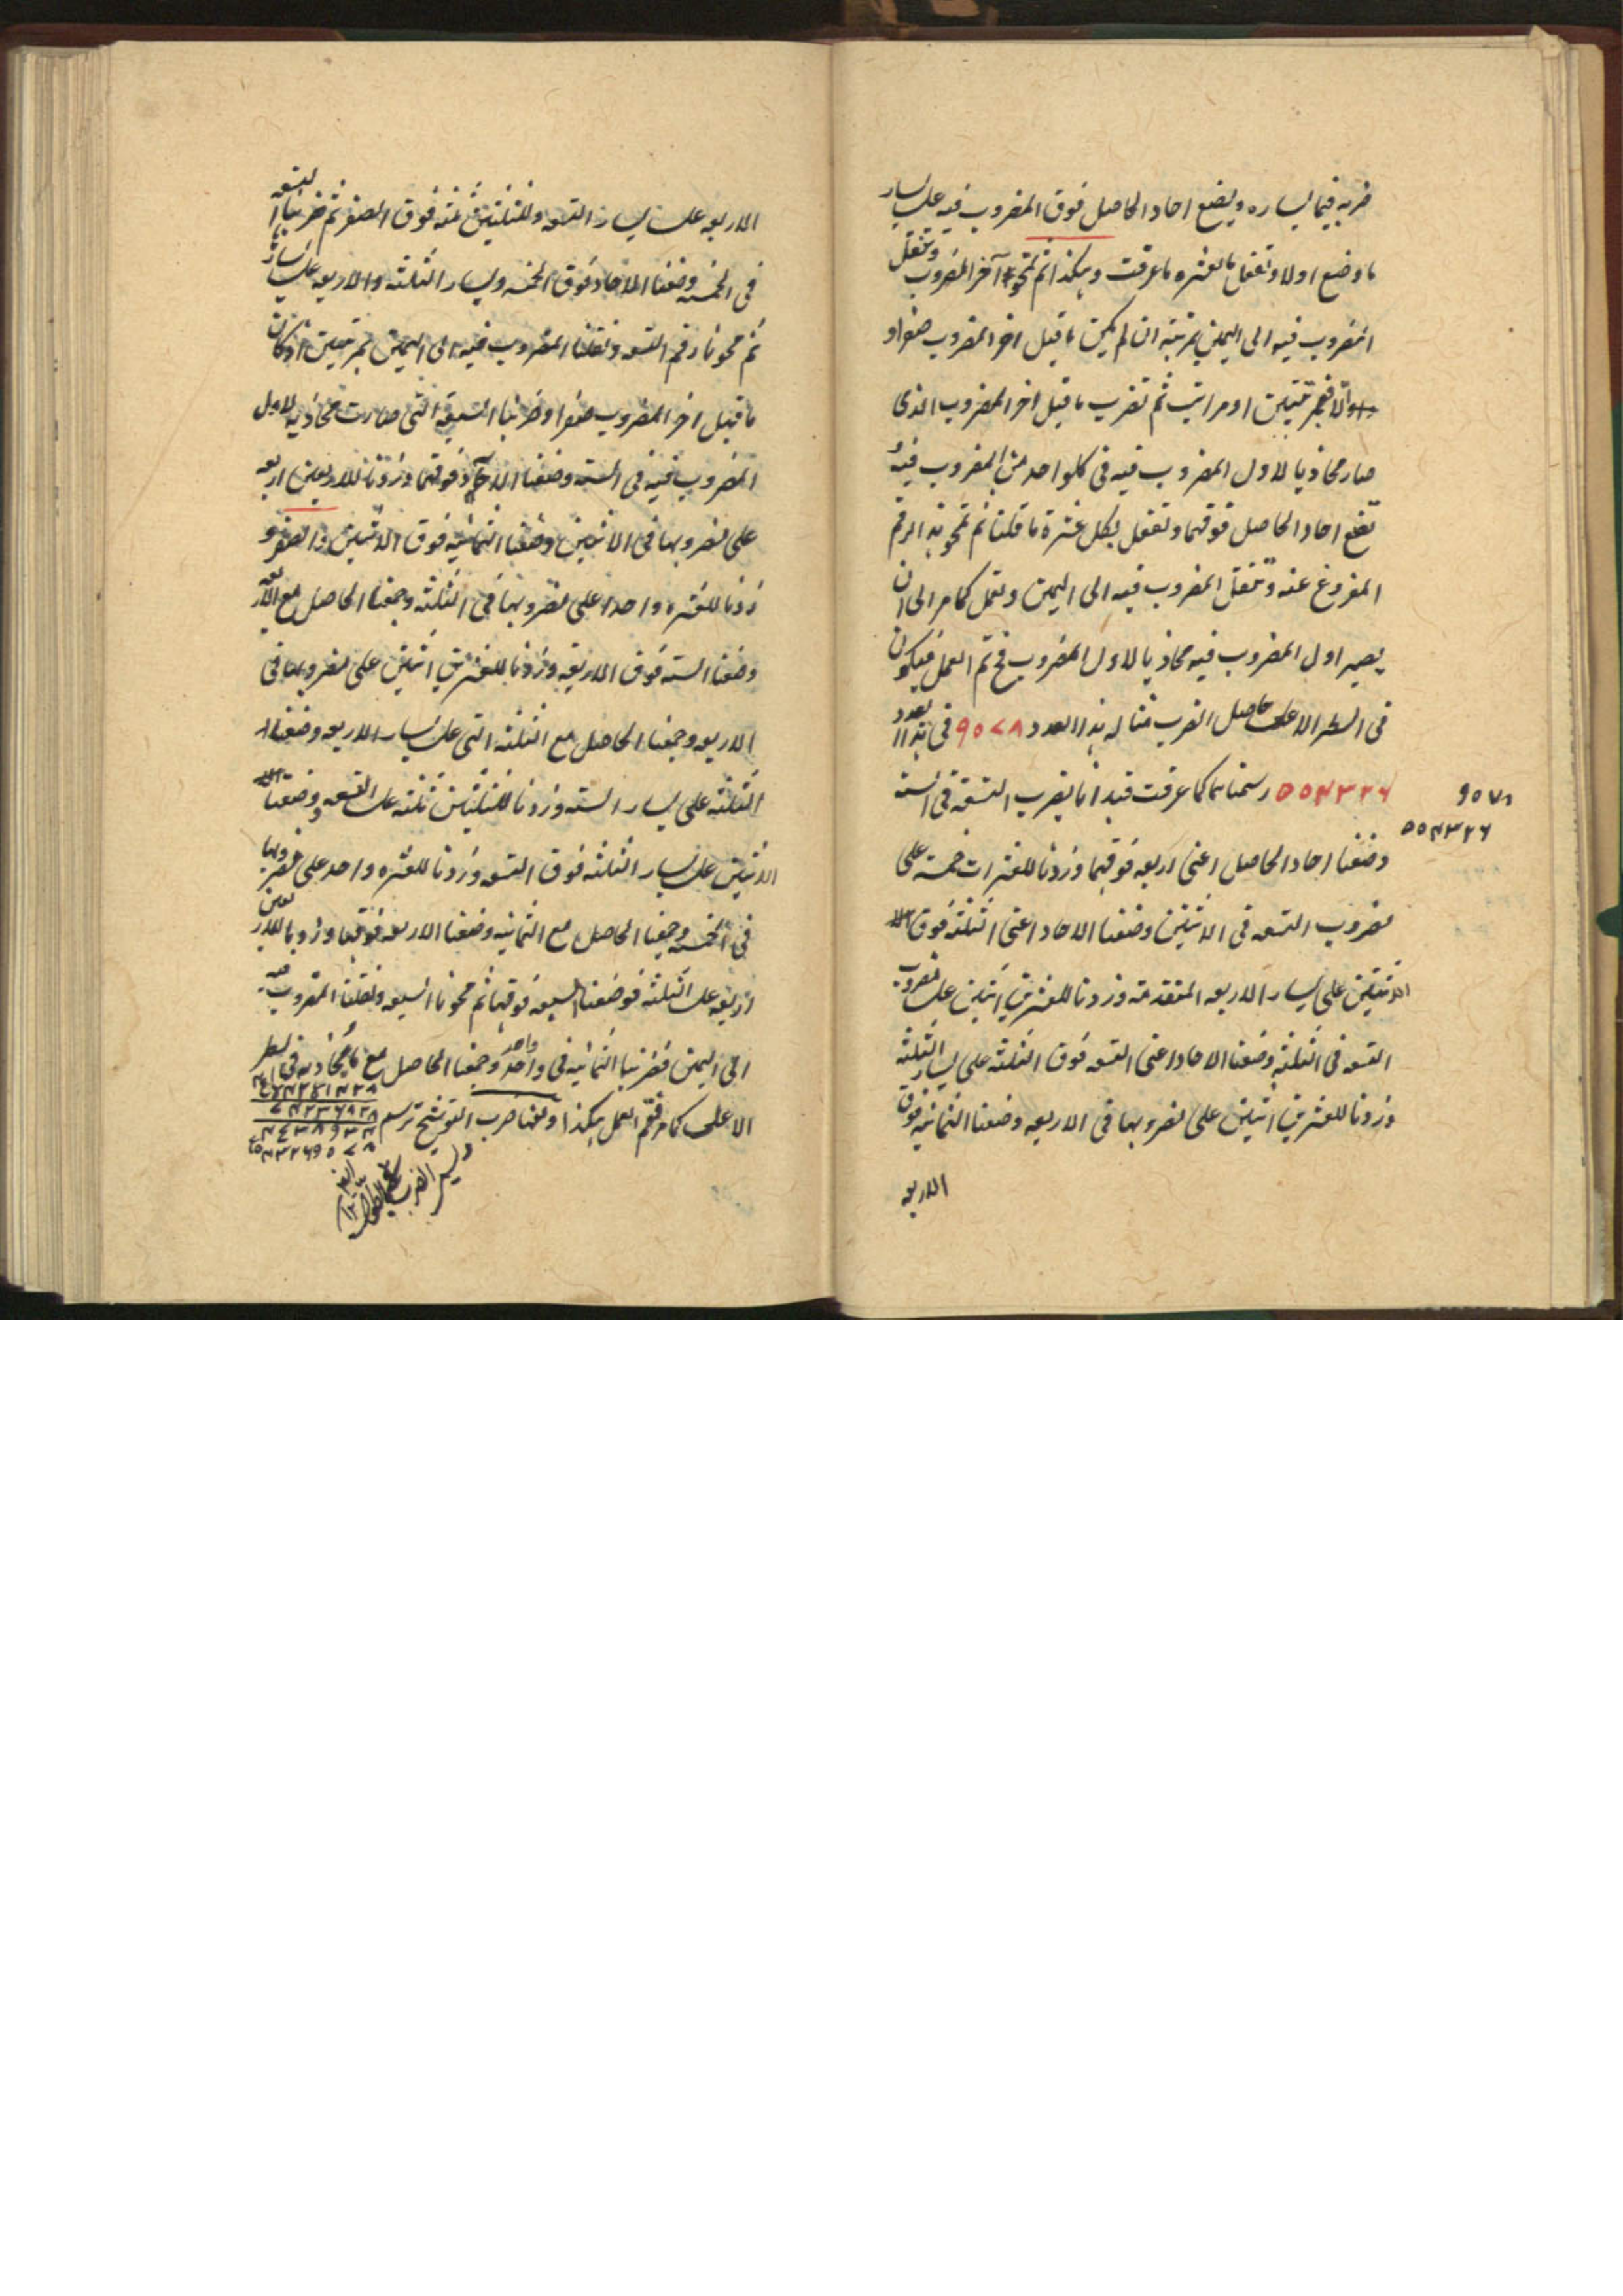 ضربه فيما يساره ويضع احاد الحاصل فوق المضروب فيه على يسار
ما وضع اولا وتفعل بالعشره ما عرفت وهكذا ثم تمحو آخر المضروب وتنقل
المضروب فيه الى اليمين بمرتبة ان لم يكن ما قبل اخر المضروب صفرا و
والا فبمرتبتين او مراتب ثم تضرب ما قبل اخر المضروب الذى
صار محاذيا لاول المضروب فيه فى كلواحد من المضروب فيه
تضع احاد الحاصل فوقهما وتفعل بكل عشرة ما قلنا ثم تمحو هذا الرقم
المفروغ عنه وتنقل المضروب فيه الى اليمين وتعمل كما مر الى ان
يصير اول المضروب فيه محاذيا لاول المضروب فح تم العمل فيكون
فى السطر الاعلى حاصل الضرب مثاله هذا العدد ٩٥٧٨ فى هذا العدد
٥٥٤٣٢٦ رسمناهما كما عرفت فبدانا بضرب التسعة فى الستة
٩٥٧٨
٥٥٤٣٢٦
وضعنا احاد الحاصل اعنى اربعه فوقهما وزدنا للعشرات خمسة على
مضروب التسعه فى الاثنتين وضعنا الاحاد اعنى الثلثة فوق
الاثنتين على يسار الاربعه المتقدمة وزدنا للعشرين اثنين على مضروب
التسعه فى الثلثة وضعنا الاحاد اعنى التسعه فوق الثلثة على يسار الثلثة
وزدنا للعشرين اثنين على مضروبها فى الاربعه وضعنا الثمانية فوق
الاربعه
الاربعه على يسار التسعه وللثلثين ثلثة فوق الصفر ثم ضربنا التسعه
فى الخمسه وضعنا الاحاد فوق الخمسه ويسار الثلثة والاربعه على يساره
ثم محونا رقم التسعه ونقلنا المضروب فيه الى اليمين بمرتبتين اذ كان
ما قبل اخر المضروب صفرا وضربنا السبعة التى صارت محاذية لاول
المضروب فيه فى الستة وضعنا الاحاد فوقهما وزدنا للاربعين اربعه
على مضروبها فى الاثنين وضعنا الثمانية فوق الاثنين والصفر و
زدنا للعشره واحدا على مضروبها فى الثلثة وجمعنا الحاصل مع الاربعه
وضعنا الستة فوق الاربعه وزدنا للعشرين اثنين على مضروبها فى
الاربعه وجمعنا الحاصل مع الثلثة التى على يسار الاربعه وضعنا
الثلثة على يسار الستة وزدنا للثلثين ثلثة على التسعه وضعنا
الاثنين على يسار الثلثة فوق التسعه وزدنا للعشره واحد على مضروبها
فى الخمسه وجمعنا الحاصل مع الثمانية وضعنا الاربعه فوقها وزدنا للاربعين
اربعه على الثلثة فوضعنا السبعه فوقها ثم محونا السبعه ونقلنا المضروب فيه
الى اليمين فضربنا الثمانية فى واحد واحد وجمعنا الحاصل مع ما يحاذيه فى السطر
الاعلى كما مر فتم العمل هكذا ومنها ضرب التوشيح ترسم